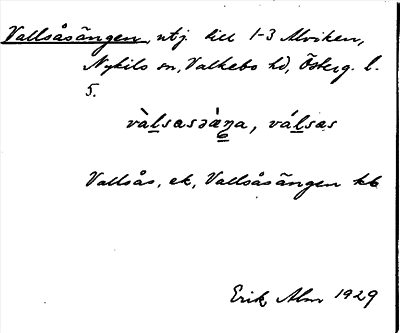 Vallsåsängen, utj. till 1-3 Alviken,
Nykils sn, Valkebo hd, Österg. l.
5.
vàlsasàŋa, válsas
6
Vallsås, ek, Vallsåsängen kbl
Erik Alm 1929